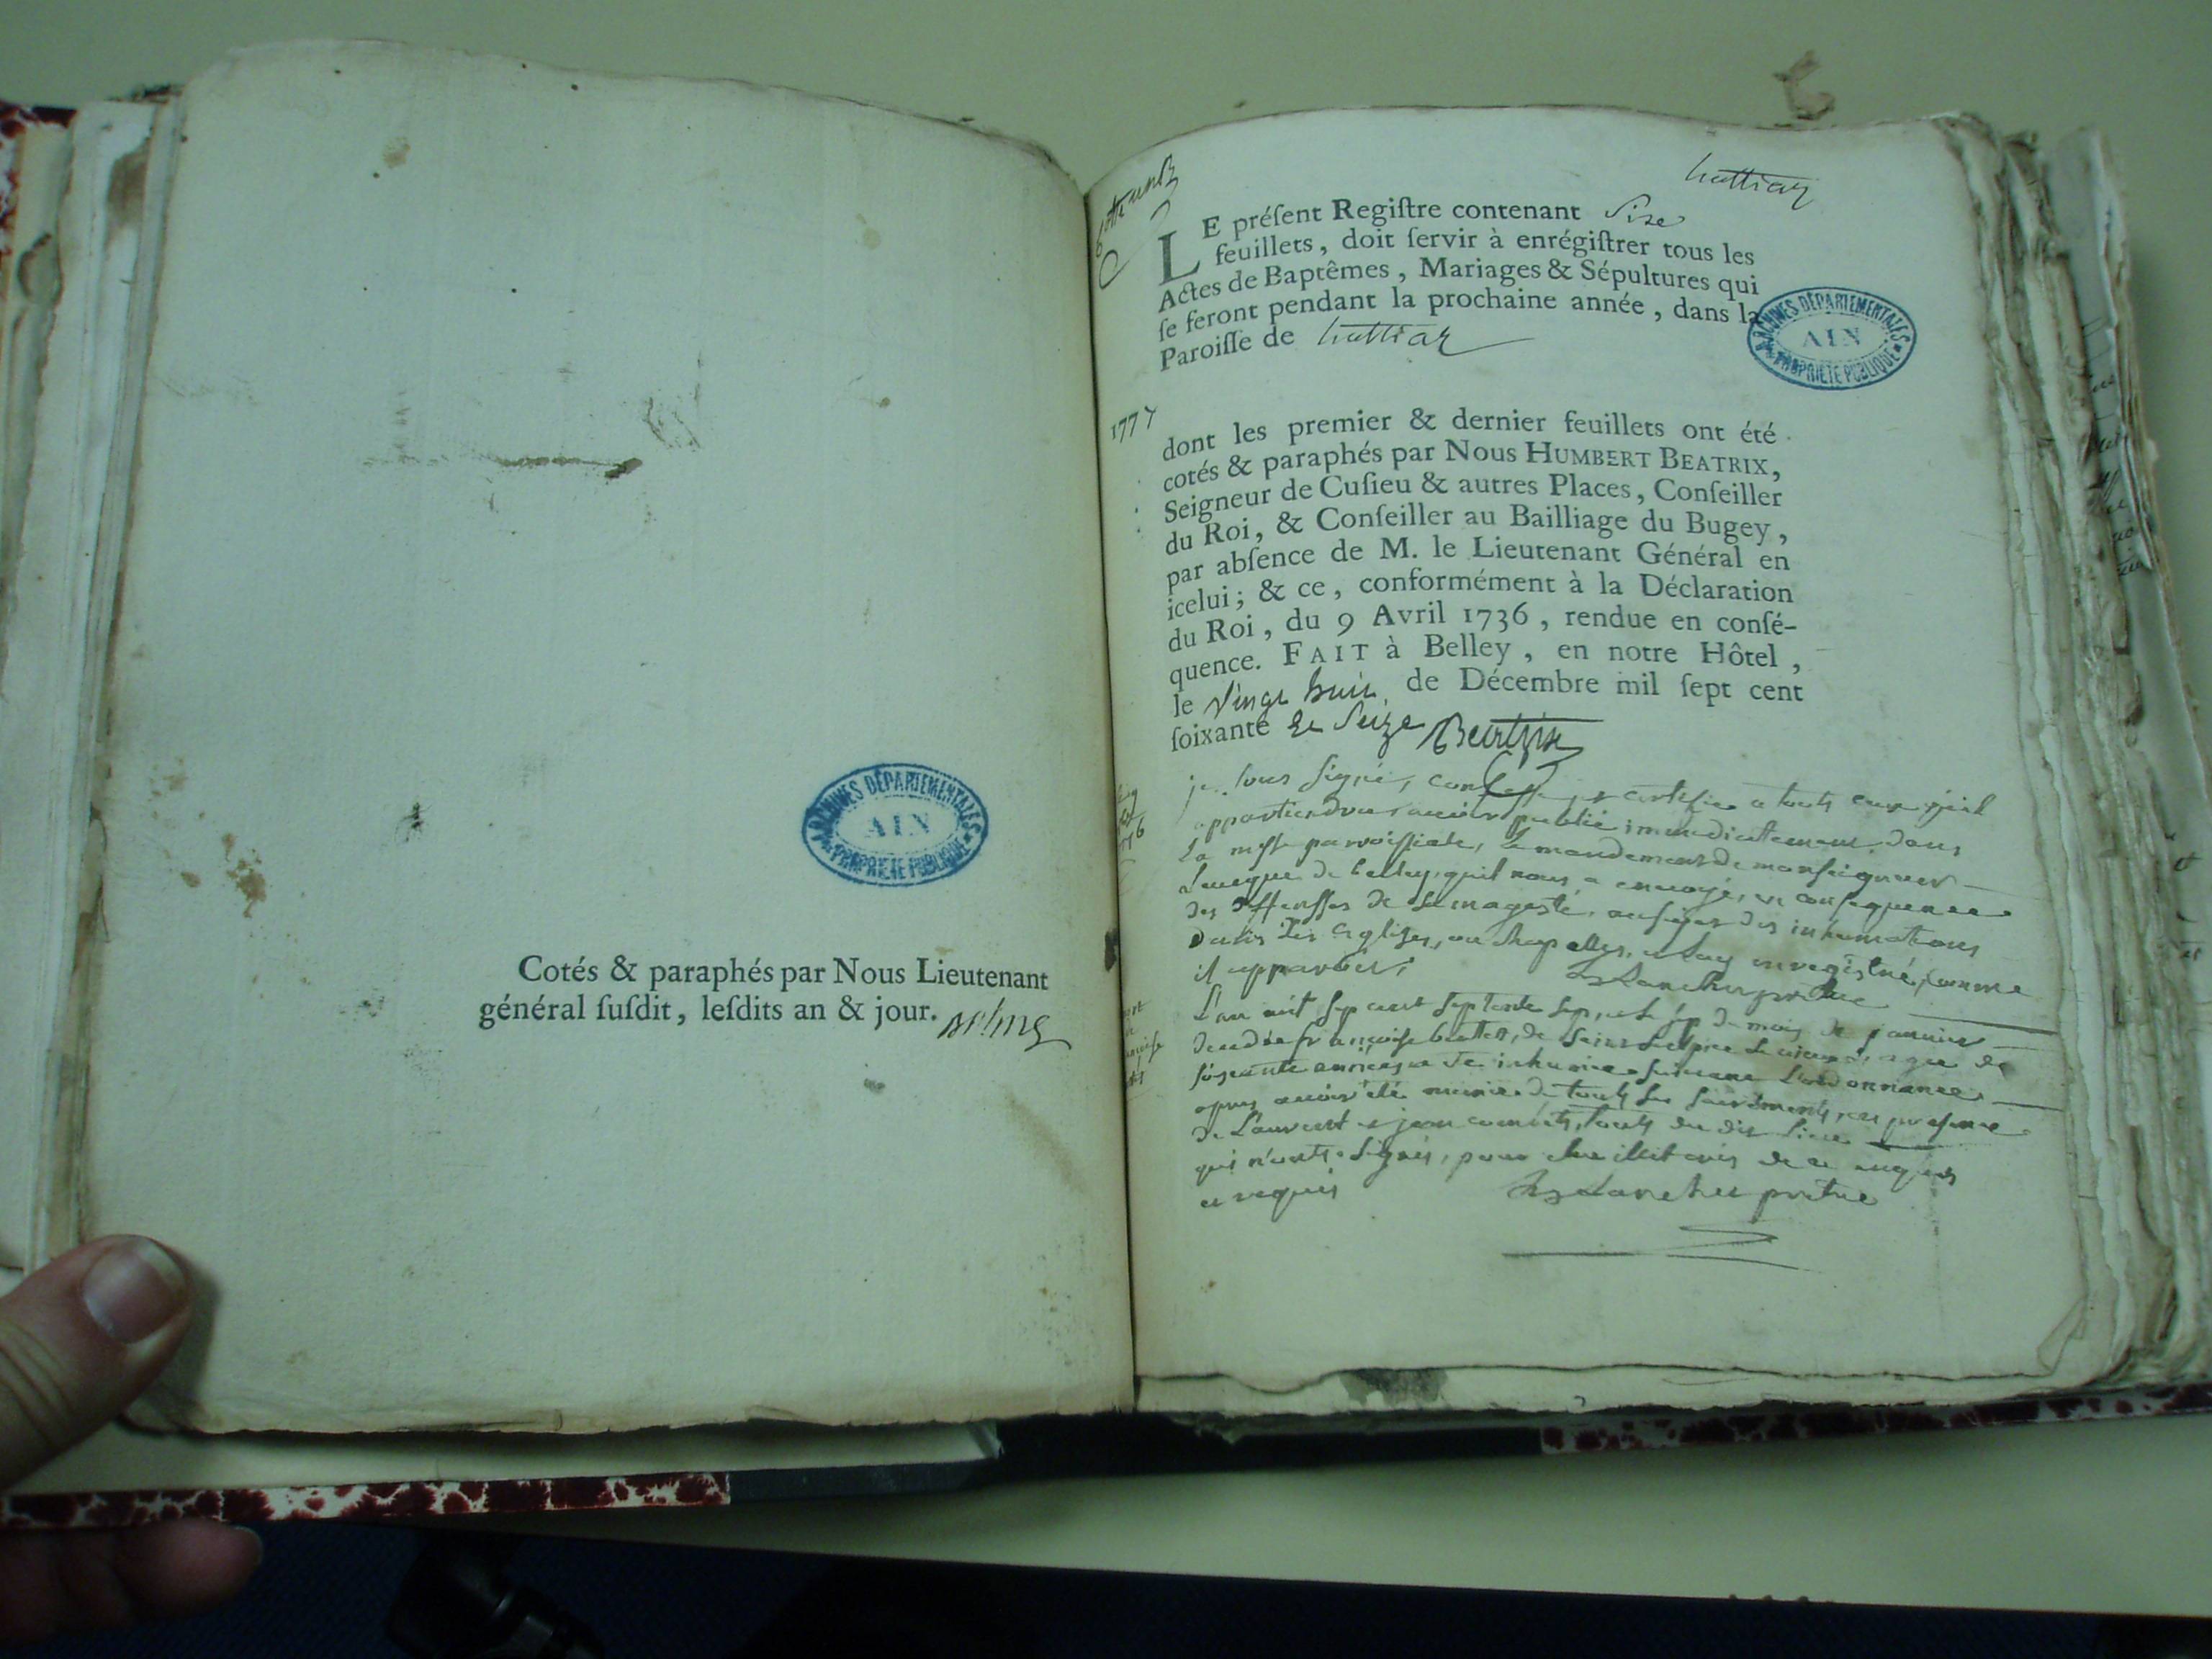 Cotés & paraphés par Nous Lieutenant
général ſuſdit, leſdits an & jour.
ARCHIVES DÉPARTEMENTALES
AIN
PROPRIÉTÉ PUBLIQUE
huttiaz
LE préſent Regiſtre contenant Size
feuillets, doit ſervir à enrégiſtrer tous les
Actes de Baptêmes, Mariages & Sépultures qui
ſe feront pendant la prochaine année, dans la
Paroiſſe de huttiaz
ARCHIVES DÉPARTEMENTALES
AIN
PROPRIÉTÉ PUBLIQUE
1777
dont les premier & dernier feuillets ont été
cotés & paraphés par Nous HUMBERT BEATRIX,
Seigneur de Cuſieu & autres Places, Conſeiller
du Roi, & Conſeiller au Bailliage du Bugey,
par abſence de M. le Lieutenant Général en
icelui; & ce, conformément à la Déclaration
du Roi, du 9 Avril 1736, rendue en conſé-
quence. FAIT à Belley, en notre Hôtel,
le vingt huit de Décembre mil ſept cent
ſoixante et Seize Beatrix
je sous signé, certifie a touts ceux qu'il
appartiendra avoir publié immediatement dans
La messe parroissiale, Le mandement de monseigneur
Leveque de belley, quil nous a envoyé, en consequence
des deffensses de Sa majesté, au sujet des inhumations
dans les Eglises, ou chapelles, et lay enregistré, comme
il appartient,
L'an mil sept cent septente sept, et le sept du mois de janvier
decedée françoise, de
soixante années, a été inhumée suivant L'ordonnance
apres avoir été munie de touts ses sacrements, en presence
de Laurent et jean, touts du dit lieu
qui n'ont signés, pour etre illiterés de ce enquis
et requis prêtre